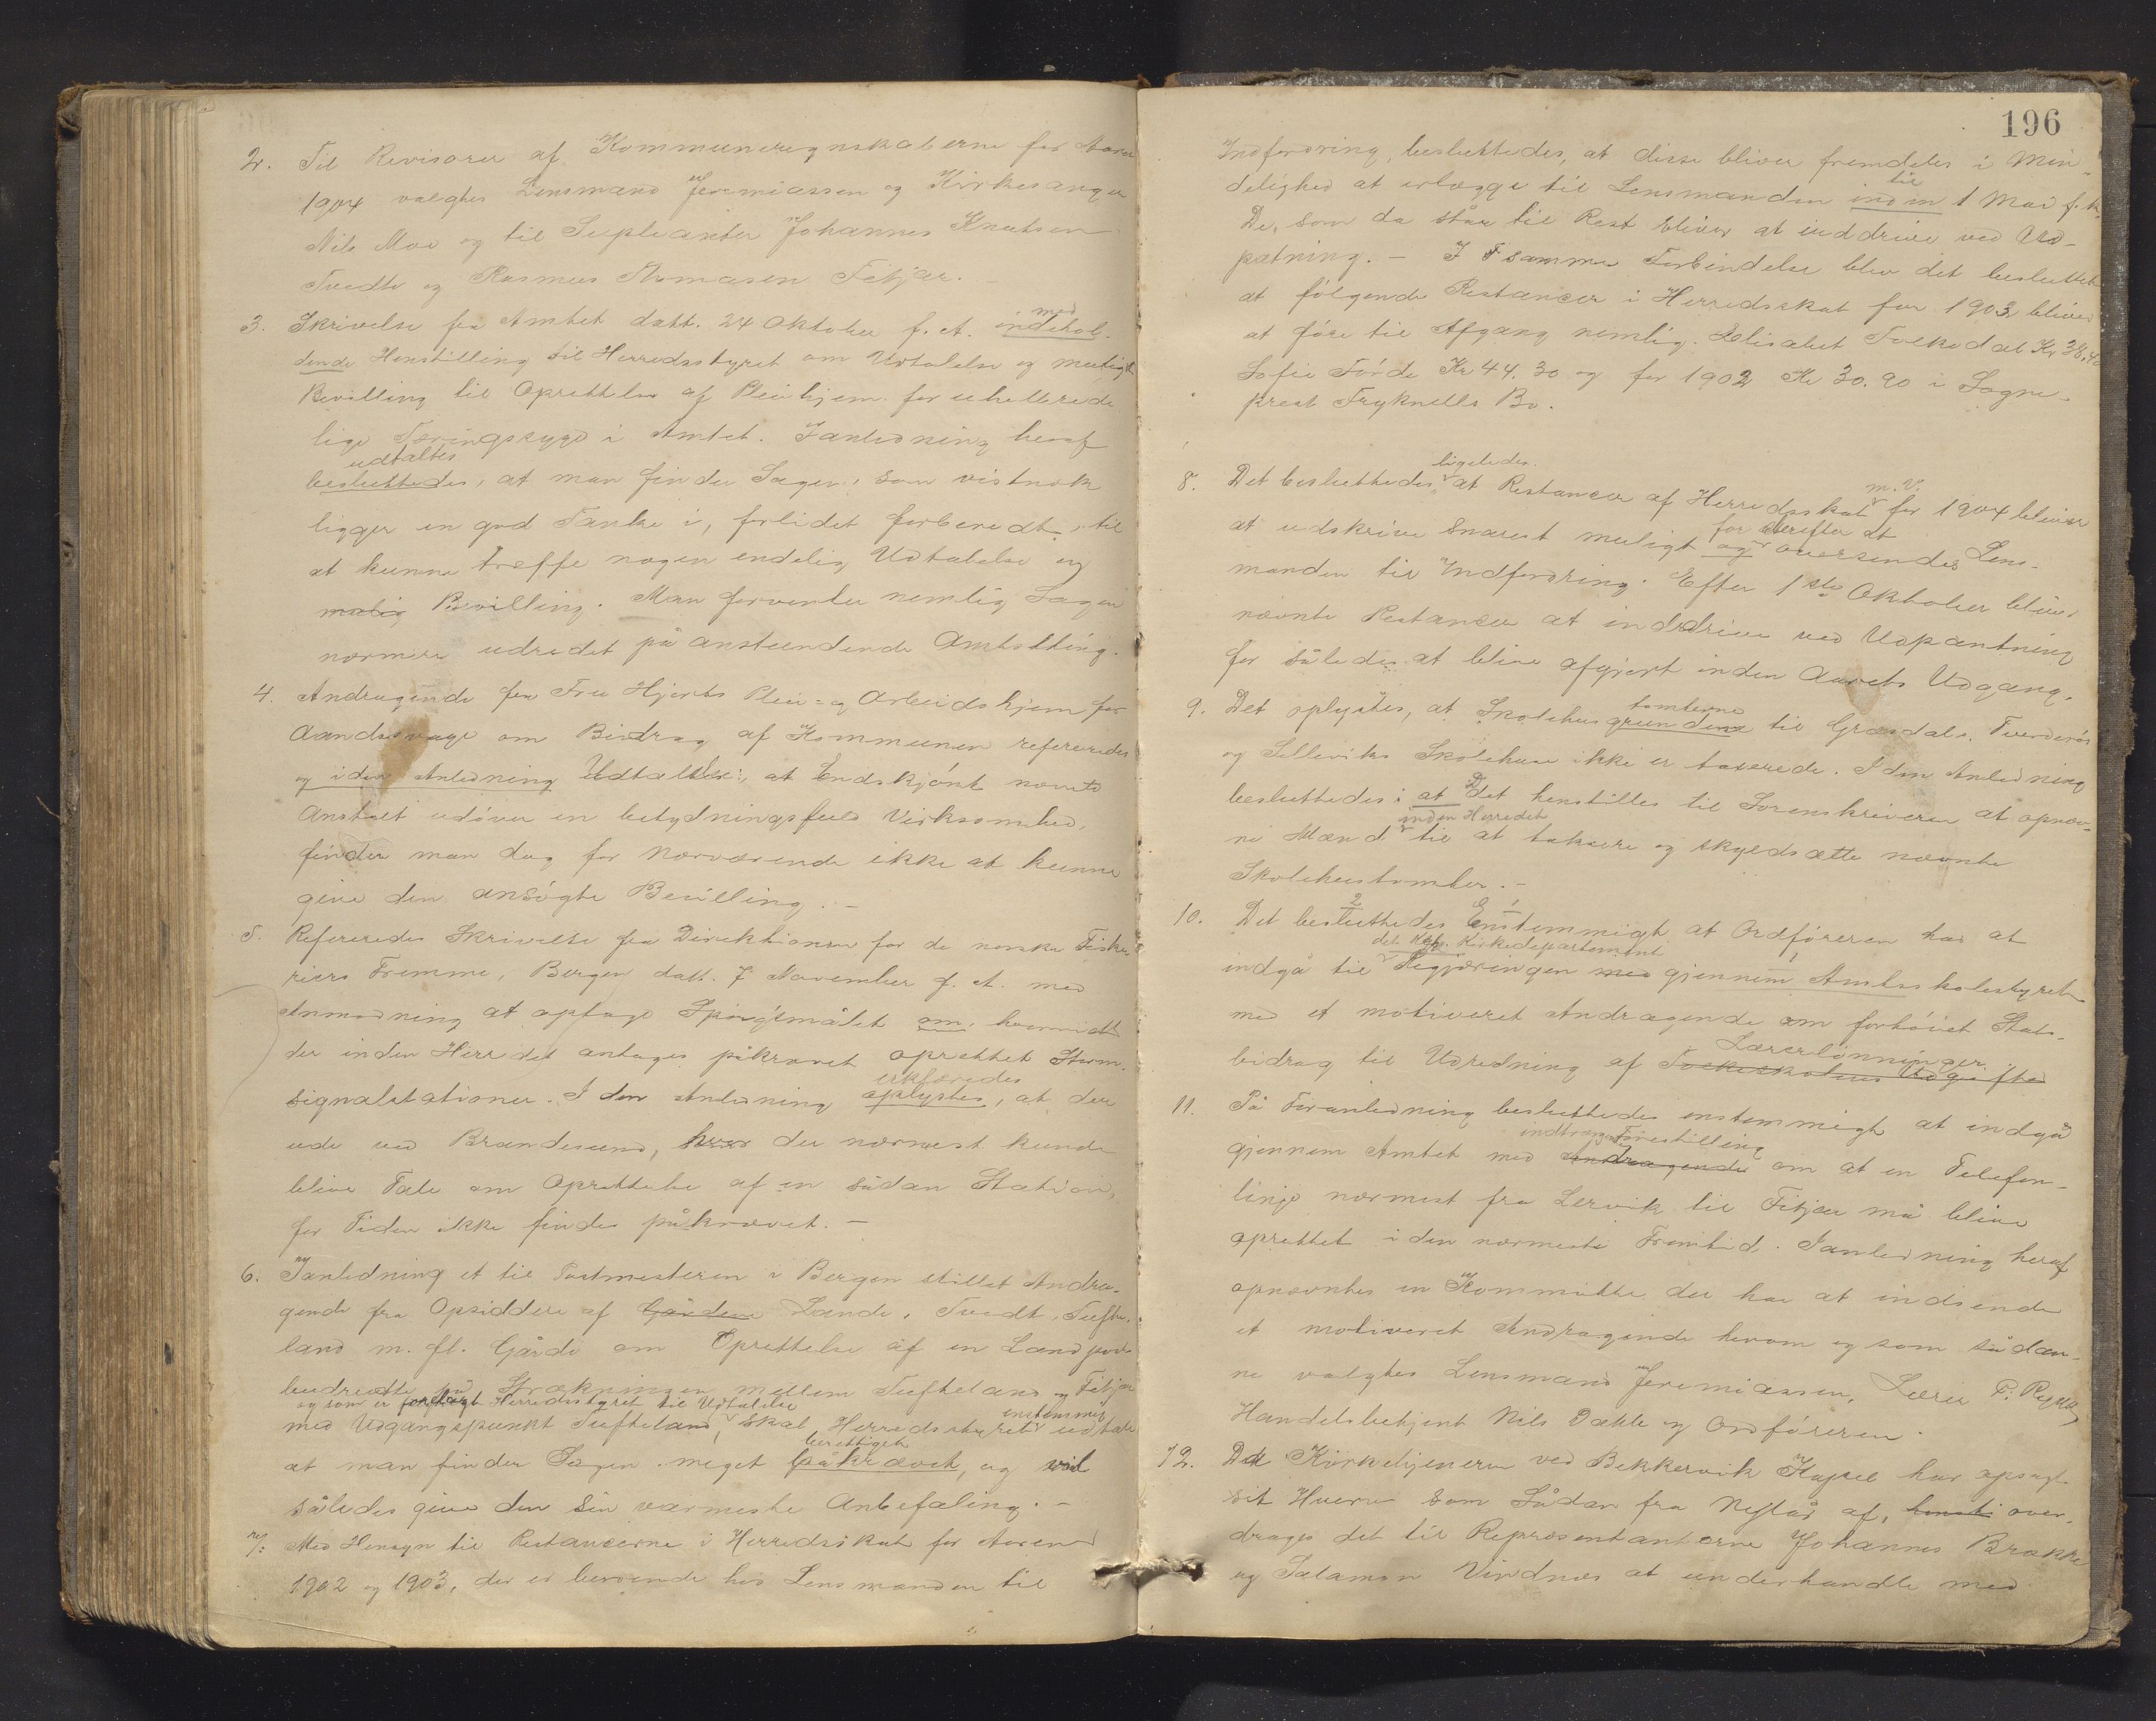 2. Til Revisorer af Kommuneregnskaberne for Aaret
1904 valgtes Lensmand Jeremiassen og Kirkesanger
Nils Moe og til Supleanter Johannes Knutsen
Tvedte og Rasmus Thomasen Fitjar. –
med
3. Skrivelse fra Amtet datt. 24 Oktober f. A. indehol-
dende Henstilling til Herredsstyret om Udtalelse og muligt
Bevilling til Oprettelse af Pleiehjem for uhelbrede-
lige Tæringssyge i Amtet. I Anledning heraf
udtaltes
besluttedes, at man finder Sagen, som vistnok
ligger en god Tanke i, forlidet forberedt, til
at kunne træffe nogen endelig Udtalelse og
mulig Bevilling. Man forventer nemlig Sagen
nærmere udredet på anstundende Amtsting.
4. Andragende fra Fru Hjorts Pleie- og Arbeidshjem for
Aandssvage om Bidrag af Kommunen refereredes
og i den Anledning Udtaltes:, at Endskjønt nævnte
Anstalt udøver en betydningsfuld Virksomhed,
finder man dog for Nærværende ikke at kunne
give den ansøgte Bevilling. –
5. Refereredes Skrivelse fra Direktionen for de norske Fiske-
riers Fremme, Bergen datt. 7 November f. A. med
Anmodning at optage Spørgsmålet om, hvorvidt
der inden Herredet antages påkrævet oprettet Storm-
erklæredes
signalstationer. I den Anledning oplystes, at der
ude ved Brandesund, hvor der nærmest kunde
blive Tale om Oprettelse af en sådan Station,
for Tiden ikke findes påkrævet. –
6. I Anledning et til Postmesteren i Bergen stillet Andra-
gende fra Opsiddere af Gårdene Lande, Tvedt, Tufte-
land m. fl. Gårde om Oprettelse af en Landpost-
budrute på Strækningen mellem Tufteland og Fitjar
og som er forelagt Herredsstyret til Udtalelse
enstemmig
med Udgangspunkt Tufteland, skal Herredsstyret udtale
berettiget
at man finder Sagen meget påkrævet, og vil
således give den sin varmeste Anbefaling. –
7: Med Hensyn til Restancerne i Herredsskat for Aarene
1902 og 1903, der er beroende hos Lensmanden til
196
Indfordring, besluttedes, at disse bliver fremdeles i Min-
til
delighed at erlægge til Lensmanden inden 1 Mai f. k.
De, som da står til Rest bliver at inddrive ved Ud-
pantning. – I samme Forbindelse blev det besluttet
at følgende Restancer i Herredsskat for 1903 bliver
at føre til Afgang nemlig. Elisabet Kr 38,40
Sofie Førde Kr 44.30 og for 1902 Kr 30.90 i Sogne-
prest Fryknells Bo.
ligeledes
m. v.
8. Det besluttedes, at Restancer af Herredsskat for 1904 bliver
for derefter at
at udskrive snarest muligt og oversendes Lens-
manden til Indfordring. Efter 1ste Oktober bliver
nævnte Restancer at inddrive ved Udpantning
for således at blive afgjort inden Aarets Udgang.
tomterne
9. Det oplystes, at Skolehusgrundene til Græsdals, Tverderås
og Selleviks Skolehuse ikke er taxerede. I den Anledning
besluttedes: at Det henstilles til Sorenskriveren at opnæv-
inden Herredet
ne Mænd til at taksere og skyldsætte nævnte
Skolehustomter. –
2 1
10. Det besluttedes Enstemmigt at Ordføreren har at
det Kgl. Kirkedepartement
indgå til Regjæringen med gjennem Amtsskolestyret
med et motiveret Andragende om forhøiet Stats-
Lærerlønninger.
bidrag til Udredning af Folkeskolens Udgifter
11. På Foranledning besluttedes enstemmigt at indgå
indtrængende Forestilling
gjennem Amtet med Andragende om at en Telefon-
linje nærmest fra Lervik til Fitjar må blive
oprettet i den nærmeste Fremtid. I anledning heraf
opnævntes en Kommitte der har at indsende
et motiveret Andragende herom og som sådan-
ne valgtes Lensmand Jeremiassen, Lærer P. Rydland,
Handelsbetjent Nils Dahle og Ordføreren.
12. Da Kirketjeneren ved Bekkervik Kapel har opsagt
sit Hverv som Sådan fra Nyttår af, over-
drages det til Repræsentanterne Johannes Brakke
og Salamon Vindnæs at underhandle med